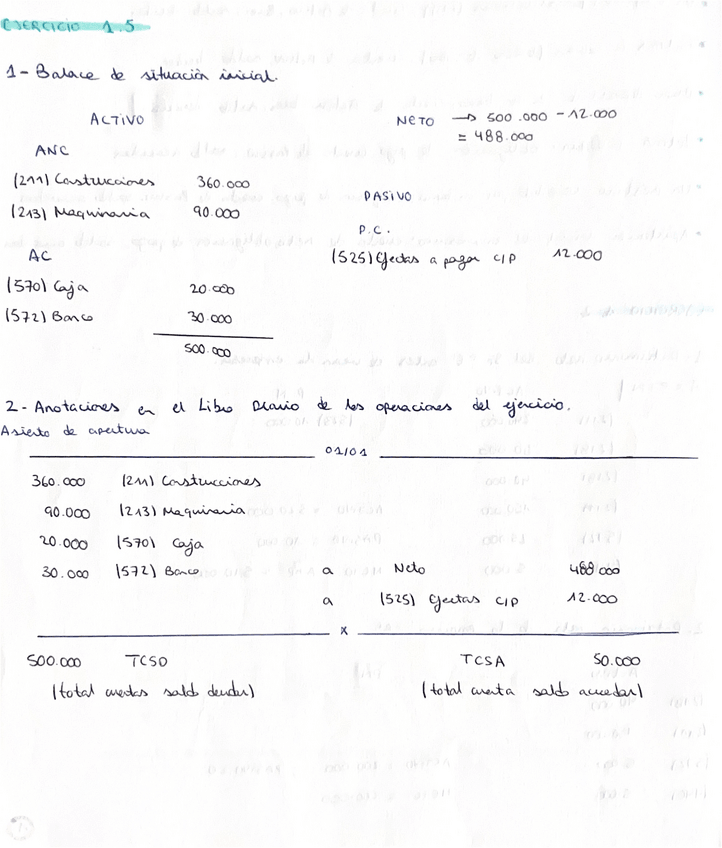 EJERCICIO 1.5
1- Balace de situación inicial.
ACTIVO
NETO → 500.000 - 12.000
= 488.000
ANC
(211) Construcciones 360.000
(213) Maquinaria 90.000
PASIVO
P.C.
AC
(525) Efectos a pagar C/P 12.000
(570) Caja 20.000
(572) Banco 30.000
500.000
2- Anotaciones en el Libro Diario de las operaciones del ejercicio.
Asiento de apertura
01/01
360.000 (211) Construcciones
90.000 (213) Maquinaria
20.000 (570) Caja
30.000 (572) Banco a Neto 488.000
a (525) Efectos C/P 12.000
x
500.000 TCSD TCSA 50.000
(total cuentas saldo deudor) (total cuenta saldo acreedor)